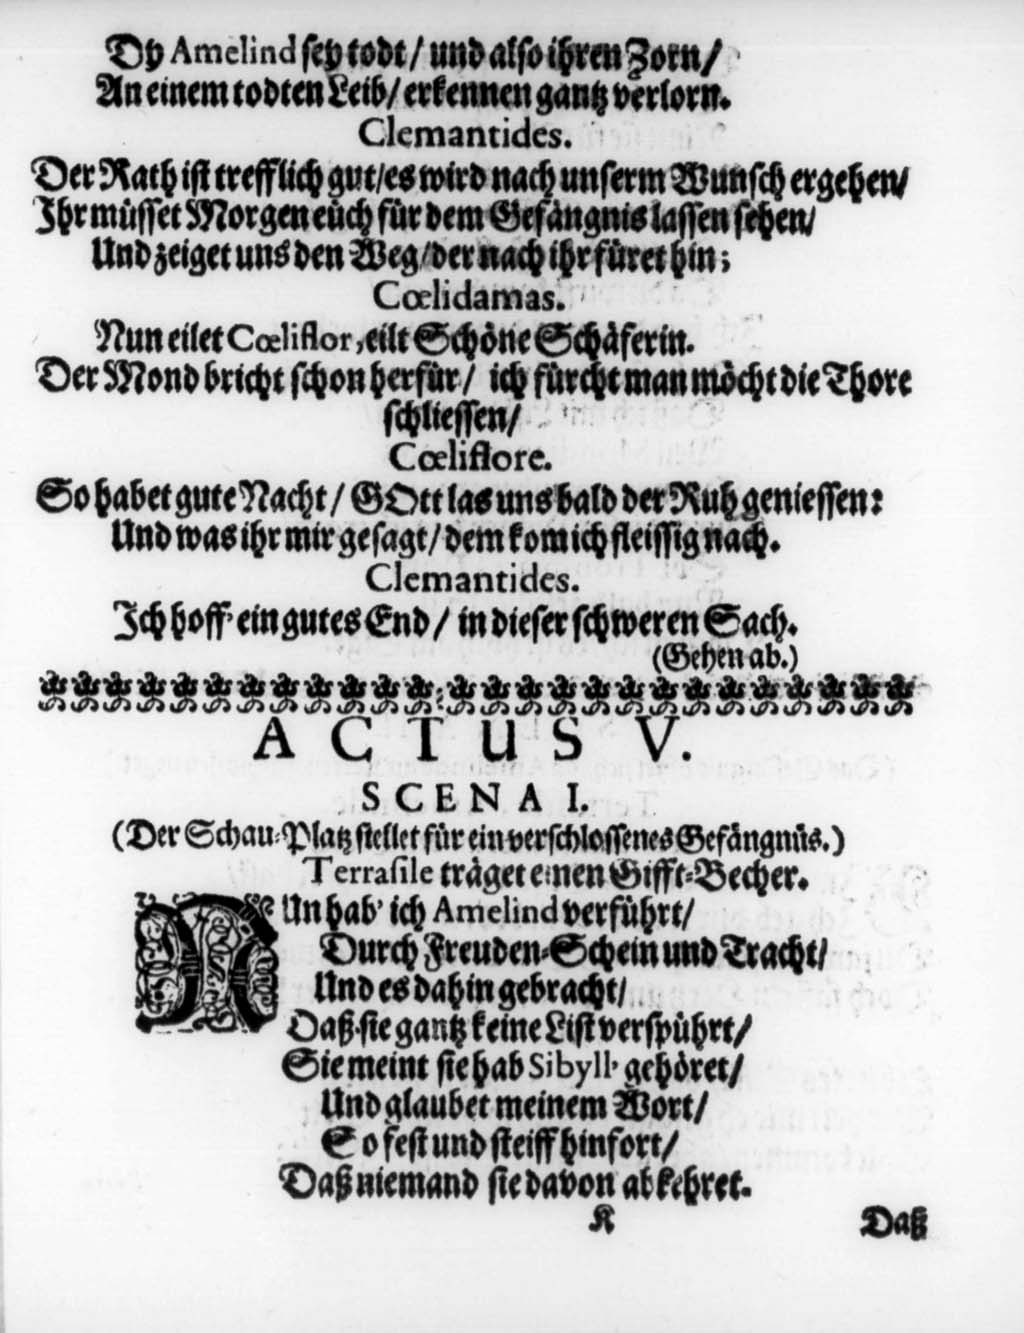 Oh Amelind sey todt / und also ihren Zorn /
An einem todten Leib / erkennen gantz verlorn.
Clemantides.
Der Rath ist trefflich gut / es wird nach unserm Wunsch ergehen /
Ihr müsset Morgen eüch für dem Gefängnis lassen sehen /
Und zeiget uns den Weg / der nach ihr füret hin;
Cœlidamas.
Nun eilet Cœliflor, eilt Schöne Schäferin.
Der Mond bricht schon herfür / ich fürcht man möcht die Thore
schliessen /
Cœliflore.
So habet gute Nacht / GOtt las uns bald der Ruh geniessen:
Und was ihr mir gesagt / dem kom ich fleissig nach.
Clemantides.
Ich hoff' ein gutes End / in dieser schweren Sach.
(Gehen ab.)
ACTUS V.
SCENA I.
(Der Schau-Platz stellet für ein verschlossenes Gefängnüs.)
Terrasile träget einen Gifft-Becher.
NUn hab' ich Amelind verführt /
Durch Freuden-Schein und Tracht /
Und es dahin gebracht /
Daß sie gantz keine List verspührt /
Sie meint sie hab Sibyll' gehöret /
Und glaubet meinem Wort /
So fest und steiff hinfort /
Daß niemand sie davon abkehret.
K Daß